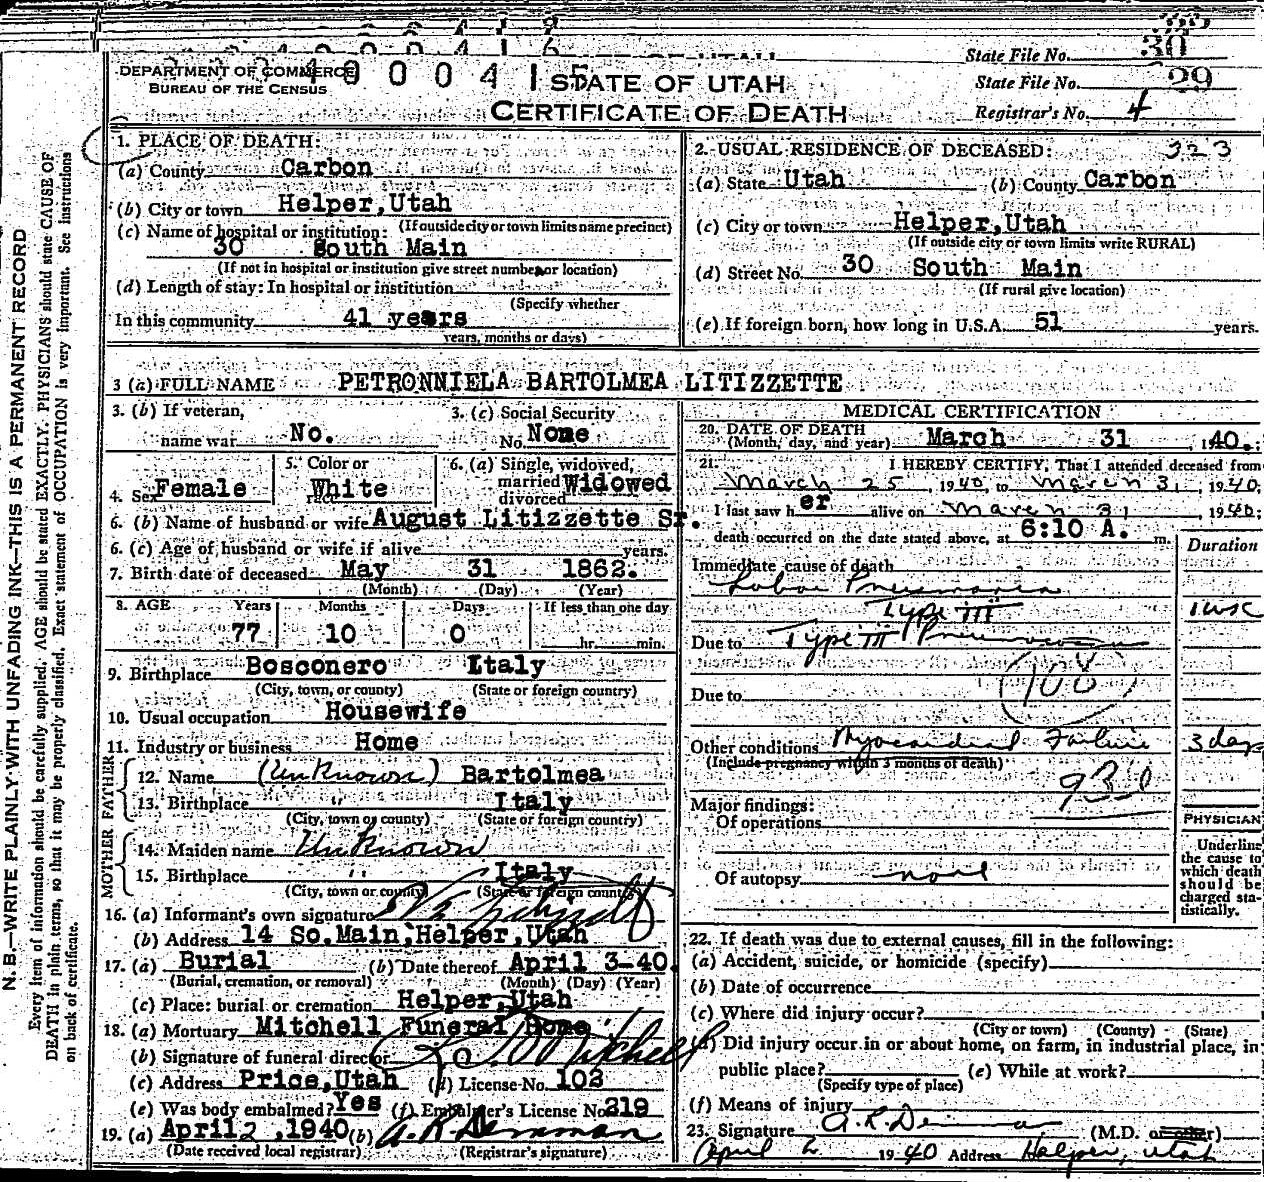 State File No. 30
DEPARTMENT OF COMMERCE
BUREAU OF THE CENSUS
STATE OF UTAH
State File No. 29
CERTIFICATE OF DEATH
Registrar's No. 4
1. PLACE OF DEATH:
(a) County Carbon
(b) City or town Helper,Utah
(If outside city or town limits name precinct)
(c) Name of hospital or institution:
30 South Main
(If not in hospital or institution give street number or location)
(d) Length of stay: In hospital or institution
(Specify whether
In this community 41 years
years, months or days)
2. USUAL RESIDENCE OF DECEASED: 323
(a) State Utah (b) County Carbon
(c) City or town Helper,Utah
(If outside city or town limits write RURAL)
(d) Street No. 30 South Main
(If rural give location)
(e) If foreign born, how long in U.S.A. 51 years.
3 (a) FULL NAME PETRONNIELA BARTOLMEA LITIZZETTE
3. (b) If veteran,
name war No.
3. (c) Social Security
No. None
4. Sex Female
5. Color or
race White
6. (a) Single, widowed,
married
divorced Widowed
6. (b) Name of husband or wife August Litizzette Sr.
6. (c) Age of husband or wife if alive years.
7. Birth date of deceased May 31 1862.
(Month) (Day) (Year)
8. AGE Years Months Days If less than one day
77 10 0 hr. min.
9. Birthplace Bosconero Italy
(City, town, or county) (State or foreign country)
10. Usual occupation Housewife
11. Industry or business Home
FATHER
12. Name (Unknown) Bartolmea
13. Birthplace " Italy
(City, town or county) (State or foreign country)
MOTHER
14. Maiden name Unknown
15. Birthplace " Italy
(City, town or county) (State or foreign country)
16. (a) Informant's own signature
(b) Address 14 So.Main,Helper,Utah
17. (a) Burial (b) Date thereof April 3-40.
(Burial, cremation, or removal) (Month) (Day) (Year)
(c) Place: burial or cremation Helper,Utah
18. (a) Mortuary Mitchell Funeral Home
(b) Signature of funeral director Mitchell
(c) Address Price,Utah (d) License No. 103
(e) Was body embalmed? Yes (f) Embalmer's License No. 219
19. (a) April 2 ,1940 (b) A. R. Demman
(Date received local registrar) (Registrar's signature)
MEDICAL CERTIFICATION
20. DATE OF DEATH
(Month, day, and year) March 31 , 1940.
21. I HEREBY CERTIFY, That I attended deceased from
March 25, 1940, to March 31, 1940;
I last saw her alive on March 31 1940;
death occurred on the date stated above, at 6:10 A. m.
Duration
Immediate cause of death
Lobar Pneumonia
Type III 1 wk
Due to Type III Pneumo
108
Due to
Other conditions Myocardial Failure 3 days
(Include pregnancy within 3 months of death)
93
Major findings:
Of operations
PHYSICIAN
Underline
the cause to
which death
should be
charged sta-
tistically.
Of autopsy none
22. If death was due to external causes, fill in the following:
(a) Accident, suicide, or homicide (specify)
(b) Date of occurrence
(c) Where did injury occur?
(City or town) (County) (State)
(d) Did injury occur in or about home, on farm, in industrial place, in
public place? (e) While at work?
(Specify type of place)
(f) Means of injury
23. Signature A. R. Demman (M.D. or other)
April 2 1940 Address Helper, Utah
N. B.—WRITE PLAINLY WITH UNFADING INK—THIS IS A PERMANENT RECORD
Every item of information should be carefully supplied. AGE should be stated EXACTLY. PHYSICIANS should state CAUSE OF
DEATH in plain terms, so that it may be properly classified. Exact statement of OCCUPATION is very important. See instructions
on back of certificate.